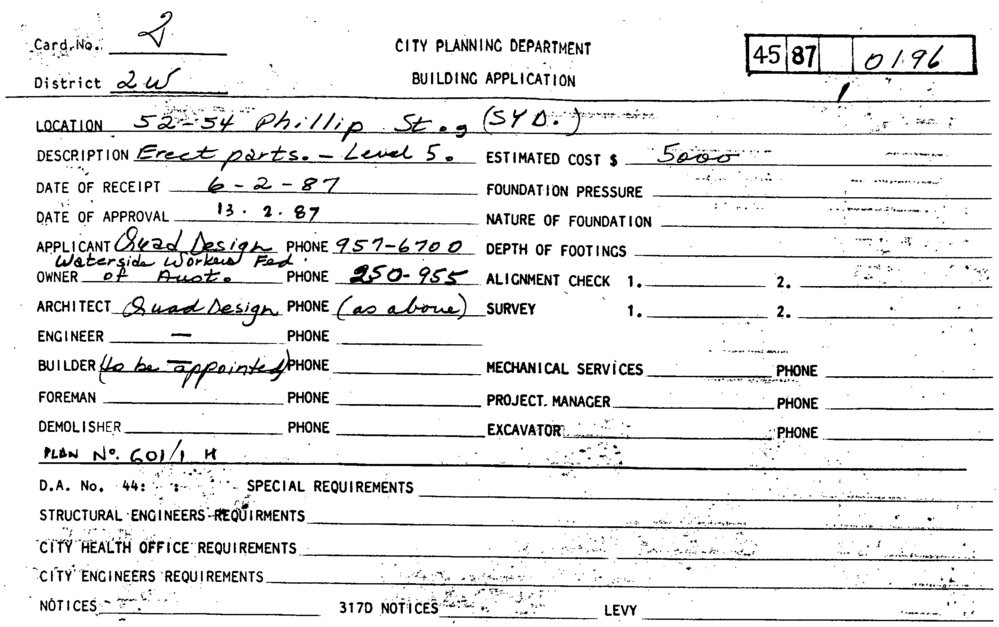 Card. No. 2 CITY PLANNING DEPARTMENT 45 87 0196
District 2W BUILDING APPLICATION
LOCATION 52-54 Phillip St., (SYD.)
DESCRIPTION Erect parts. - Level 5. ESTIMATED COST $ 5000
DATE OF RECEIPT 6-2-87 FOUNDATION PRESSURE
DATE OF APPROVAL 13.2.87 NATURE OF FOUNDATION
APPLICANT Quad Design PHONE 957-6700 DEPTH OF FOOTINGS
Waterside Workers Fed.
OWNER of Aust. PHONE 250-955 ALIGNMENT CHECK 1. 2.
ARCHITECT Quad Design PHONE (as above) SURVEY 1. 2.
ENGINEER - PHONE
BUILDER (to be appointed) PHONE MECHANICAL SERVICES PHONE
FOREMAN PHONE PROJECT. MANAGER PHONE
DEMOLISHER PHONE EXCAVATOR PHONE
PLAN No. 601/1 H
D.A. No. 44: : SPECIAL REQUIREMENTS
STRUCTURAL ENGINEERS REQUIRMENTS
CITY HEALTH OFFICE REQUIREMENTS
CITY ENGINEERS REQUIREMENTS
NOTICES 317D NOTICES LEVY